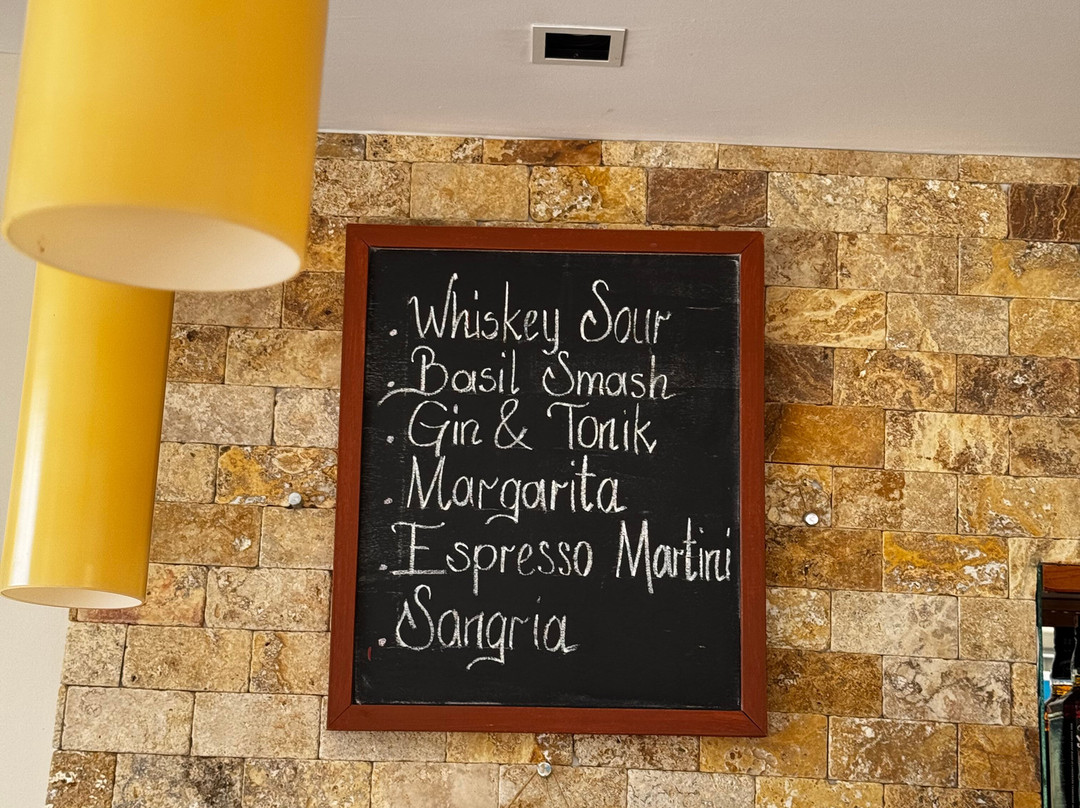 . Whiskey Sour
. Basil Smash
. Gin & Tonik
. Margarita
. Espresso Martini
. Sangria